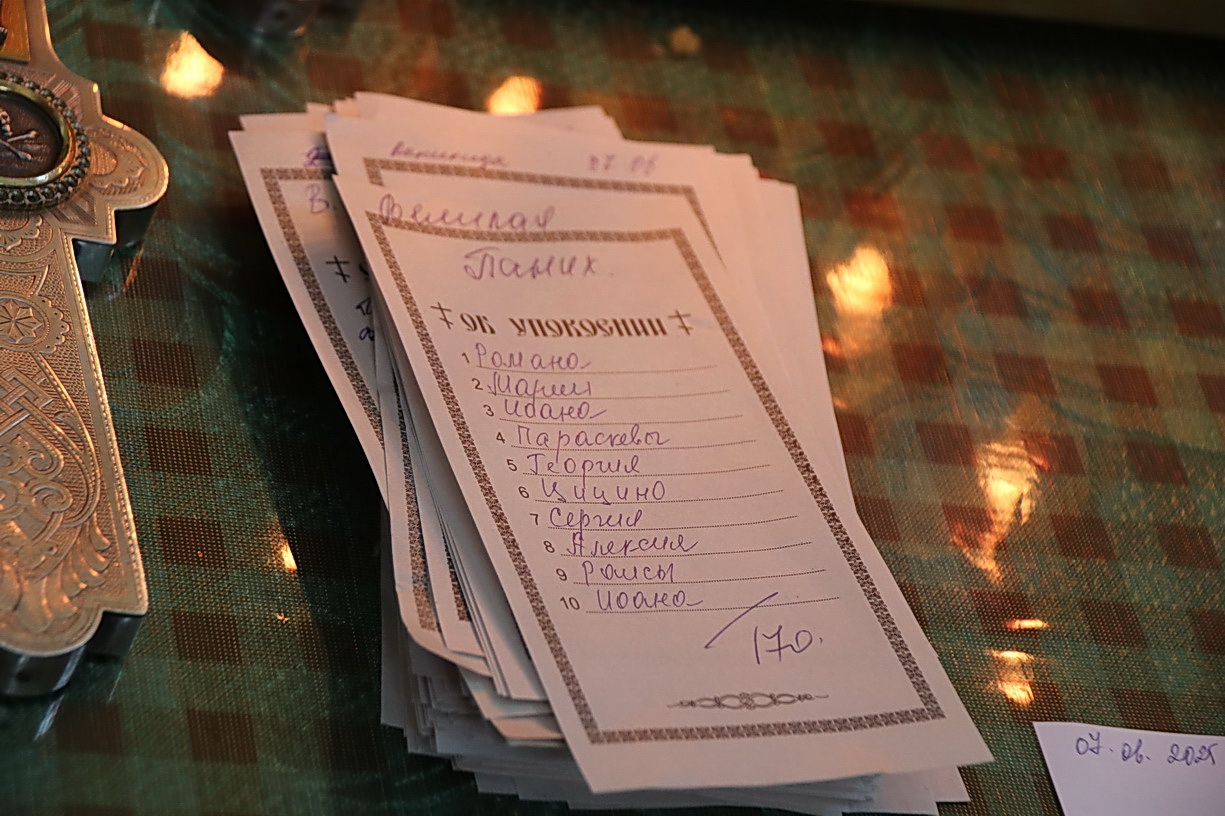 07 06
Великая
Паних.
ОБ УПОКОЕНИИ
1 Романа
2 Марии
3 Иоана
4 Параскевы
5 Георгия
6 Цицино
7 Сергия
8 Алексия
9 Раисы
10 Иоана
170.
07.06.2025